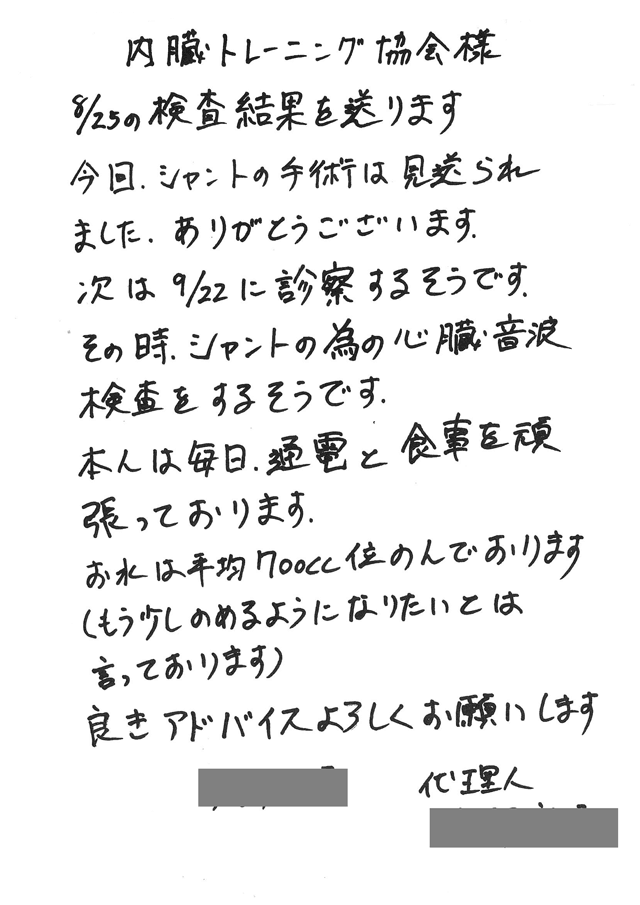 内臓トレーニング協会様
8/25の検査結果を送ります
今回、シャントの手術は見送られ
ました、ありがとうございます。
次は9/22に診察するそうです。
その時、シャントの為の心臓音波
検査をするそうです。
本人は毎日、通電と食事を頑
張っております。
お水は平均700cc位のんでおります
(もう少しのめるようになりたいとは
言っております)
良きアドバイスよろしくお願いします
代理人